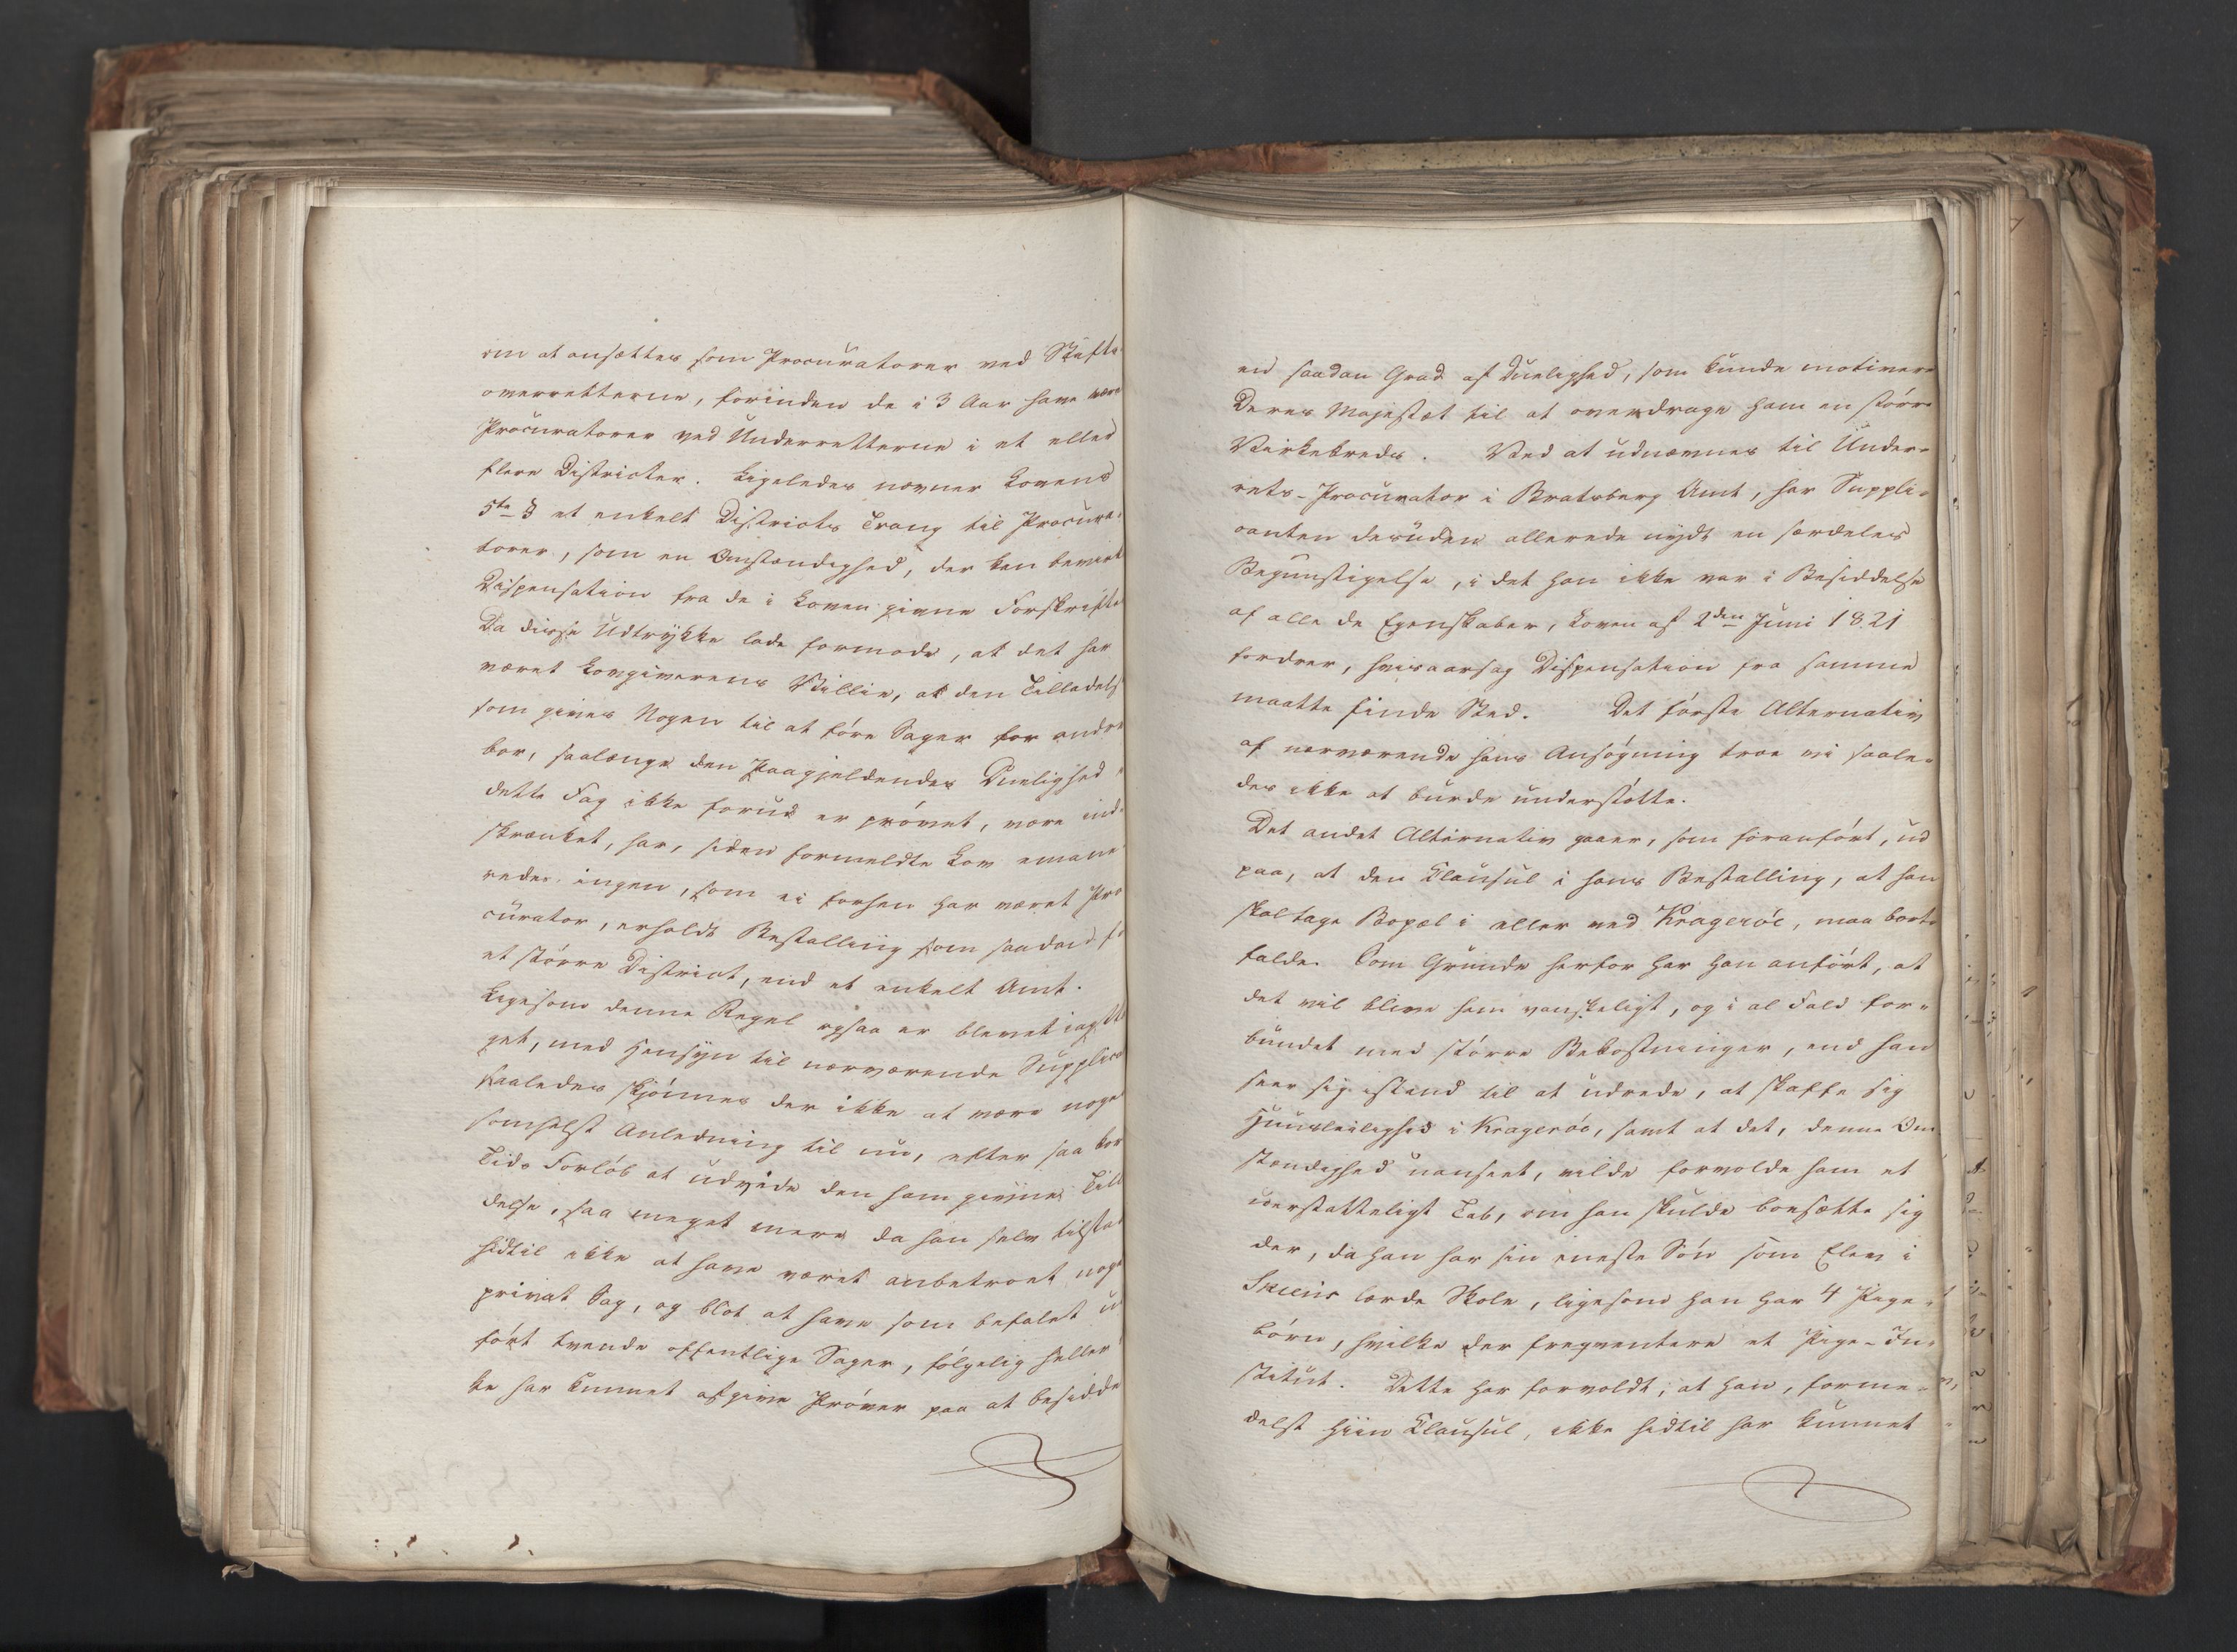 om at ansættes som Procuratorer ved Stifts-
overretterne, forinden de i 3 Aar have være
Procuratorer ved Underretterne i et eller
flere Districter. Ligeledes nævner Lovens
5te § et enkelt Districts Trang til Procura-
torer, som en Omstændighed, der kan bevirk
Dispensation fra de i Loven givne Forskrifte
Da disse Udtrykke lade formode, at det har
været Lovgiverens Villie, at den Tilladels
som gives Nogen til at føre Sager for andre
bør, saalænge den Paagjeldendes Duelighed
dette Fag ikke forud er prøvet, være ind-
skrænket, har, siden formeldte Lov emane
redes ingen, som ei forhen har været Pro
curator, erholdt Bestalling som saadan fo
et større District, end et enkelt Amt.
Ligesom denne Regel ogsaa er blevet iagtta
get, med Hensyn til nærværende Supplica
saaledes skjønnes der ikke at være noge
somhelst Anledning til nu, efter saa kor
Tids Forløb at udvide den ham givne Till
delse, saa meget mere da han selv tilstaa
hidtil ikke at have været anbetroet noge
privat Sag, og blot at have som befalet u
ført tvende offentlige Sager, følgelig heller
ke har kunnet afgive Prøver paa at besidde
en saadan Grad af Duelighed, som kunde motivere
Deres Majestæt til at overdrage ham en større
Virkekreds. Ved at udnævnes til Under-
rets-Procurator i Bratsberg Amt, har Suppli-
canten desuden allerede nydt en særdeles
Begunstigelse, i det han ikke var i Besiddelse
af alle de Egenskaber, Loven af 2den Juni 1821
fordrer, hvisaarsag Dispensation fra samme
maatte finde Sted. Det første Alternativ
af nærværende hans Ansøgning troe vi saale-
des ikke at burde understøtte.
Det andet Alternativ gaaer, som foranført, ud
paa, at den Clausul i hans Bestalling, at han
skal tage Bopæl i eller ved Kragerøe, maa bort-
falde. Som Grunde herfor har han anført, at
det vil blive ham vanskeligt, og i al Fald for-
bundet med større Bekostninger, end han
seer sig istand til at udrede, at skaffe sig
Huusleilighed i Kragerøe, samt at det, denne Om
stændighed uanseet, vilde forvolde ham et
uerstatteligt Tab, om han skulde bosætte sig
der, da han har sin eneste Søn som Elev i
Skiens lærde Skole, ligesom han har 4 Pige-
børn, hvilke der freqventere et Pige-In-
stitut. Dette har forvoldt, at han, forme-
delst hiin Clausul, ikke hidtil har kunnet